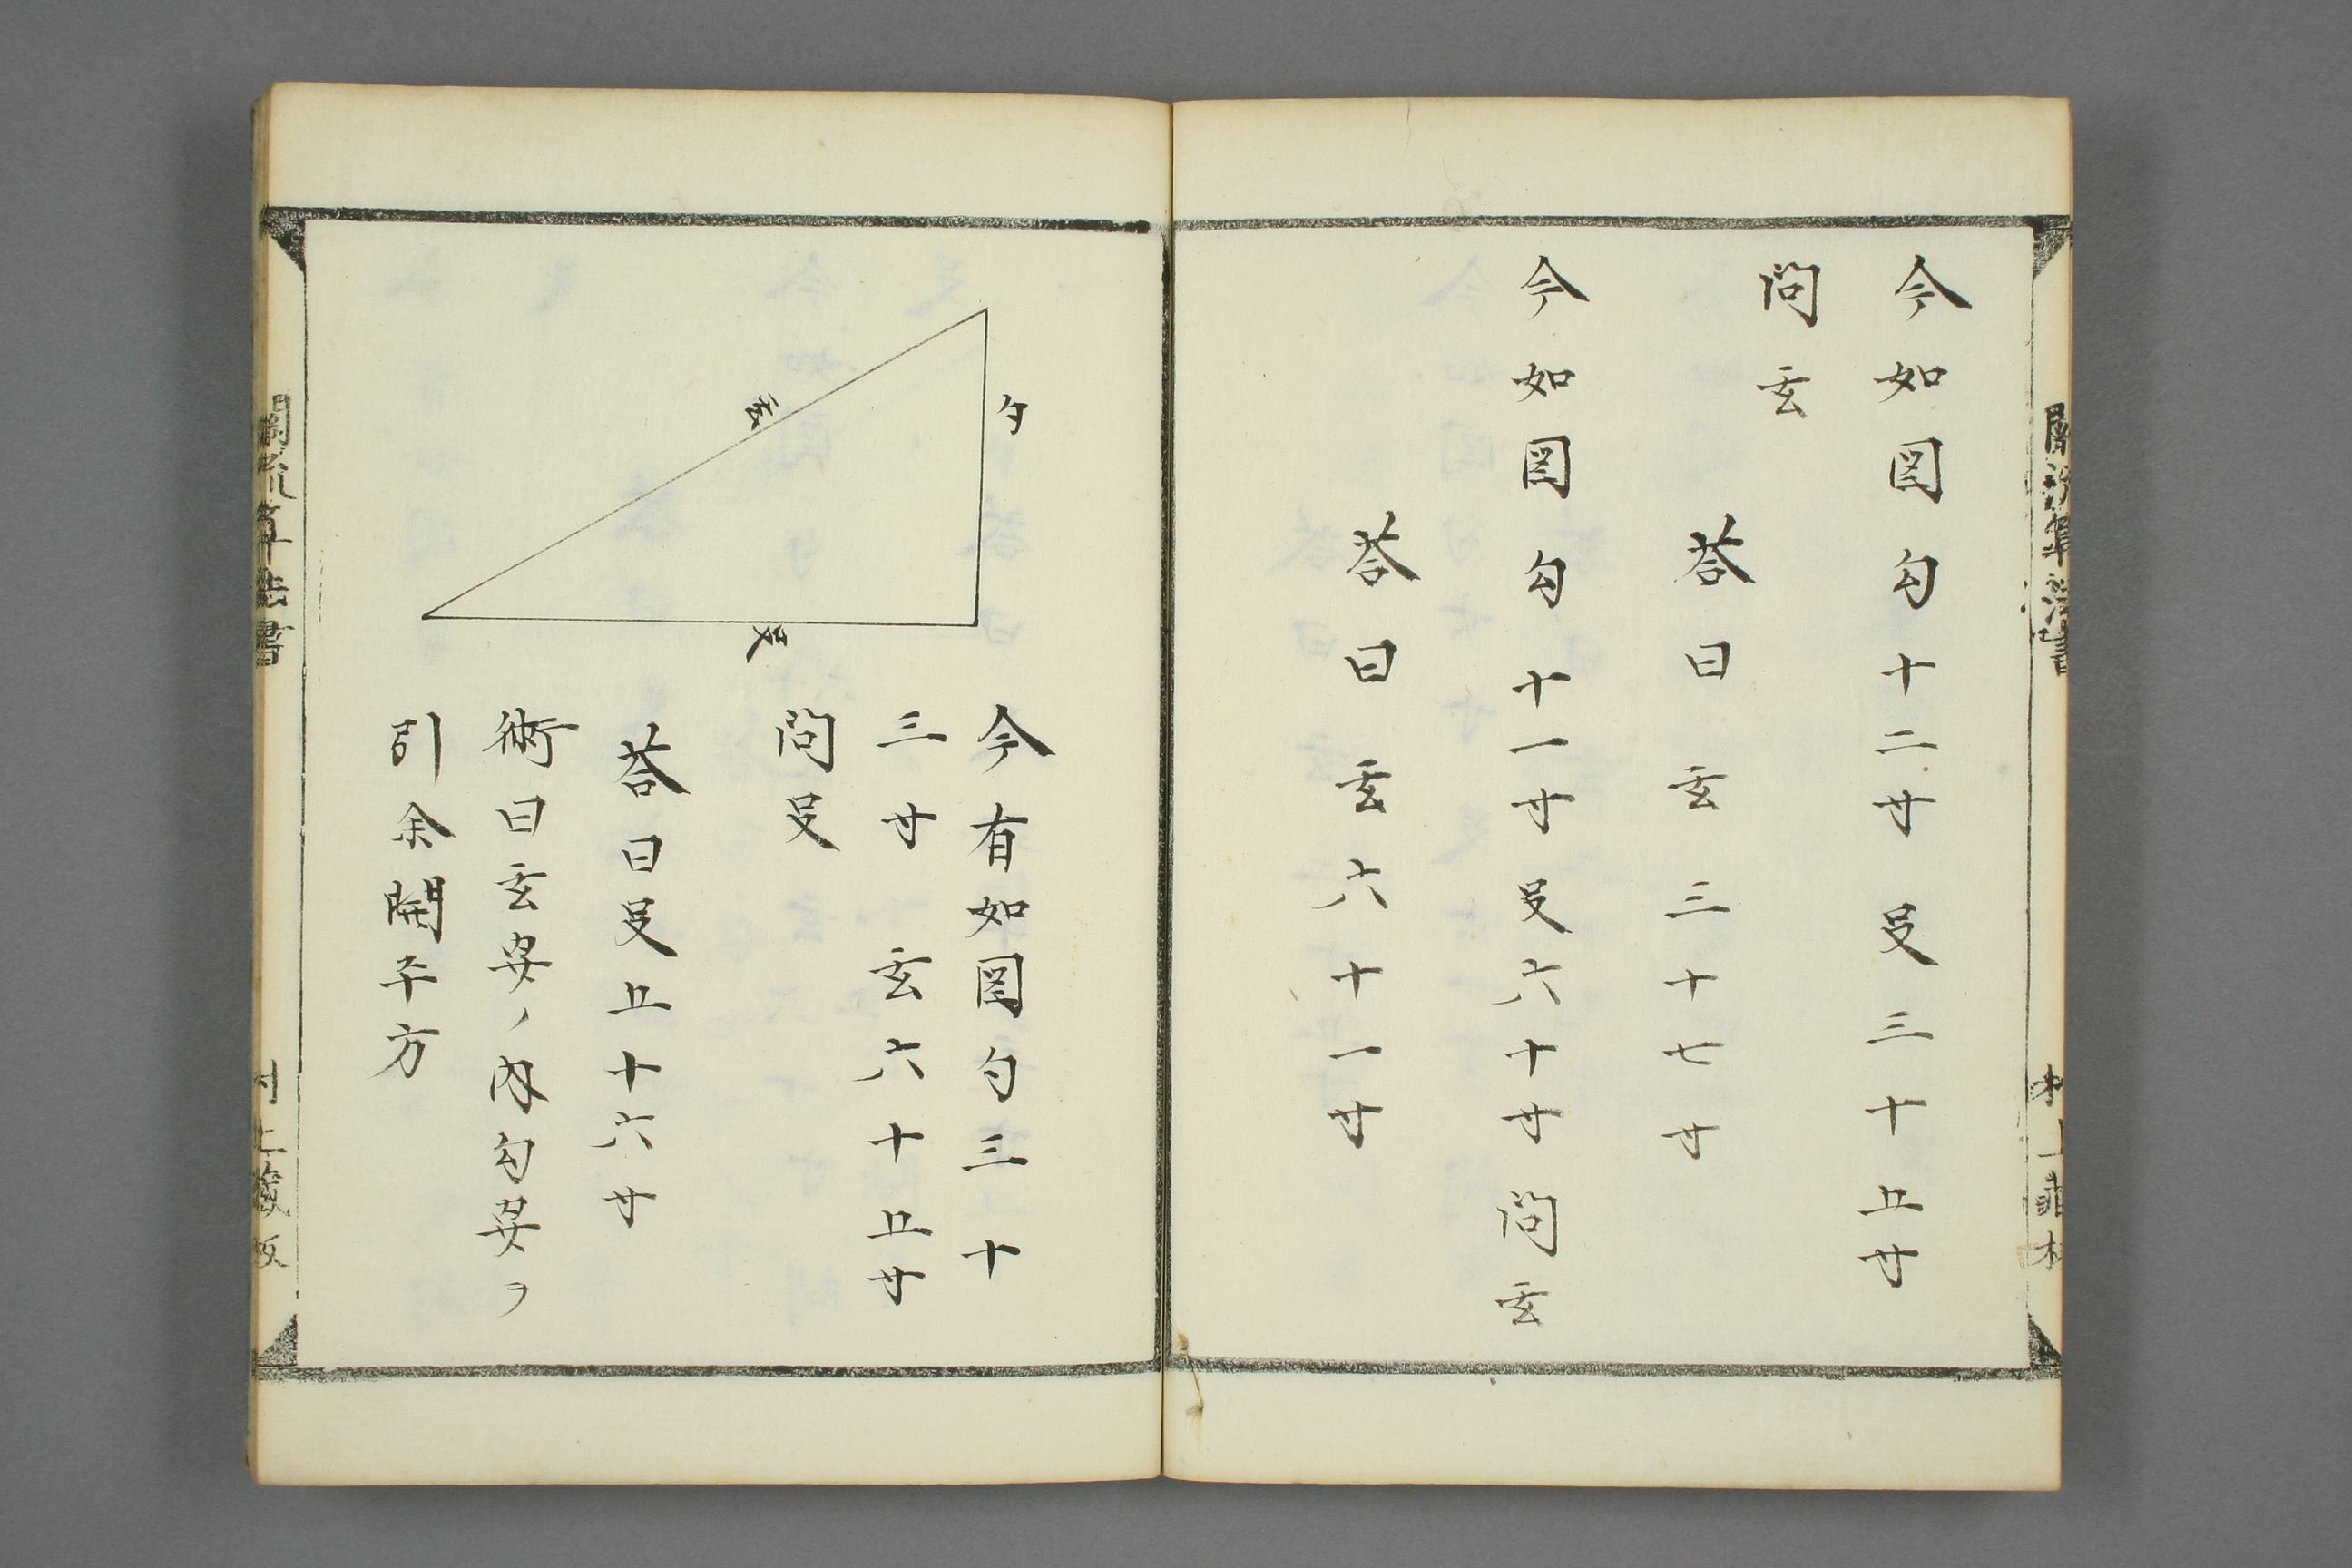 關流算法書
今如図勾十二寸殳三十五寸
問玄
荅曰玄三十七寸
今如図勾十一寸殳六十寸問玄
荅曰玄六十一寸
勾
玄
殳
今有如図勾三十
三寸玄六十五寸
問殳
荅曰殳五十六寸
術曰玄羃ノ内勾羃ヲ
引余開平方
關流算法書